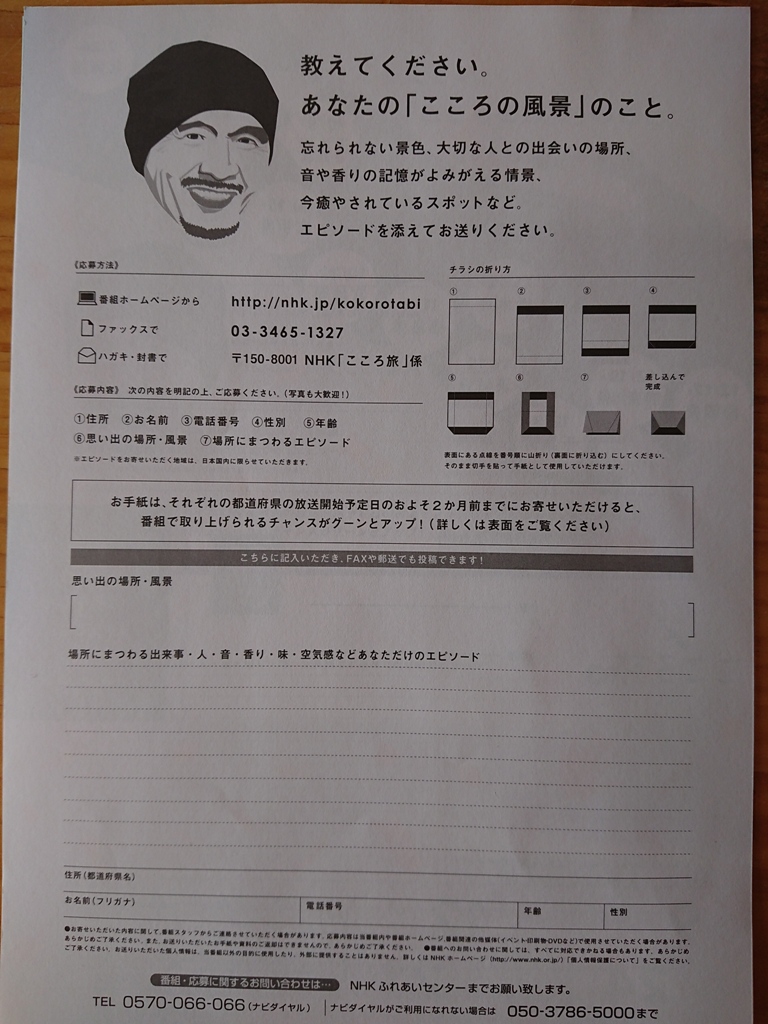 教えてください。
あなたの「こころの風景」のこと。
忘れられない景色、大切な人との出会いの場所、
音や香りの記憶がよみがえる情景、
今癒やされているスポットなど。
エピソードを添えてお送りください。
《応募方法》
番組ホームページから http://nhk.jp/kokorotabi
ファックスで 03-3465-1327
ハガキ・封書で 〒150-8001 NHK「こころ旅」係
《応募内容》 次の内容を明記の上、ご応募ください。(写真も大歓迎!)
①住所 ②お名前 ③電話番号 ④性別 ⑤年齢
⑥思い出の場所・風景 ⑦場所にまつわるエピソード
※エピソードをお寄せいただく地域は、日本国内に限らせていただきます。
チラシの折り方
① ② ③ ④
⑤ ⑥ ⑦ 差し込んで
完成
表面にある点線を番号順に山折り(裏面に折り込む)にしてください。
そのまま切手を貼って手紙として使用していただけます。
お手紙は、それぞれの都道府県の放送開始予定日のおよそ2か月前までにお寄せいただけると、
番組で取り上げられるチャンスがグーンとアップ!(詳しくは表面をご覧ください)
こちらに記入いただき、FAXや郵送でも投稿できます!
思い出の場所・風景
場所にまつわる出来事・人・音・香り・味・空気感などあなただけのエピソード
住所(都道府県名)
お名前(フリガナ) 電話番号 年齢 性別
●お寄せいただいた内容に関して、番組スタッフからご連絡させていただく場合があります。応募内容は当番組内や番組ホームページ、番組関連の他媒体(イベント・印刷物・DVDなど)で使用させていただく場合があります。
あらかじめご了承ください。また、お送りいただいたお手紙や資料のご返却はできませんので、あらかじめご了承ください。 ●番組へのお問い合わせに関しては、すべてに対応できかねる場合もあります。あらかじめ
ご了承ください。お送りいただいた個人情報は、当番組以外の目的に使用したり、外部に提供することはありません。詳しくはNHKホームページ(http://www.nhk.or.jp/)「個人情報保護について」をご覧ください。
番組・応募に関するお問い合わせは… NHK ふれあいセンターまでお願い致します。
TEL 0570-066-066(ナビダイヤル) ナビダイヤルがご利用になれない場合は 050-3786-5000まで